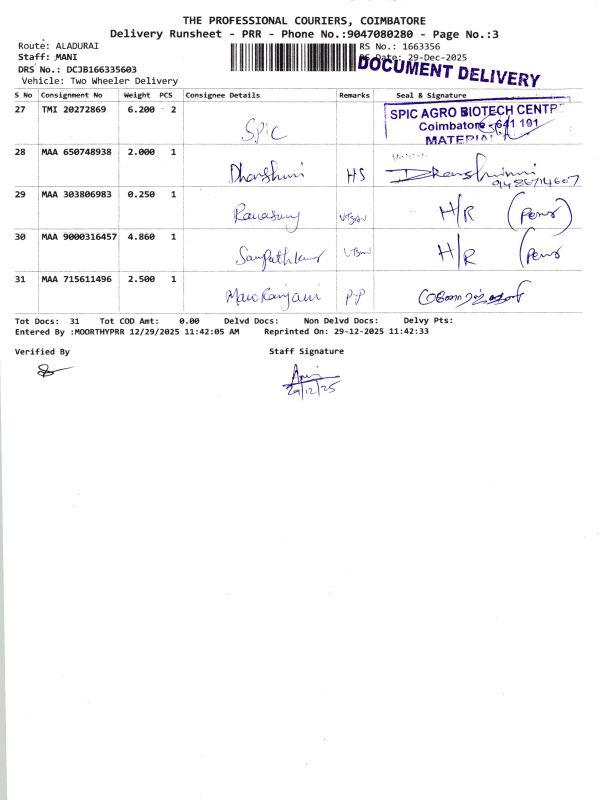 THE PROFESSIONAL COURIERS, COIMBATORE
Delivery Runsheet - PRR - Phone No.:9047080280 - Page No.:3
Route: ALADURAI RS No.: 1663356
Staff: MANI Date: 29-Dec-2025
DOCUMENT DELIVERY
DRS No.: DCJB166335603
Vehicle: Two Wheeler Delivery
S No Consignment No Weight PCS Consignee Details Remarks Seal & Signature
27 TMI 20272869 6.200 2 SPIC
SPIC AGRO BIOTECH CENTR
Coimbatore - 641 101
MATERIAL
28 MAA 650748938 2.000 1 Dharshini HS Dharshini
9486714607
29 MAA 303806983 0.250 1 H/R (Pens)
30 MAA 9000316457 4.860 1 Sampathkumar H/R (Pens
31 MAA 715611496 2.500 1 Mano Ranjani P-P
Tot Docs: 31 Tot COD Amt: 0.00 Delvd Docs: Non Delvd Docs: Delvy Pts:
Entered By :MOORTHYPRR 12/29/2025 11:42:05 AM Reprinted On: 29-12-2025 11:42:33
Verified By Staff Signature
29/12/25